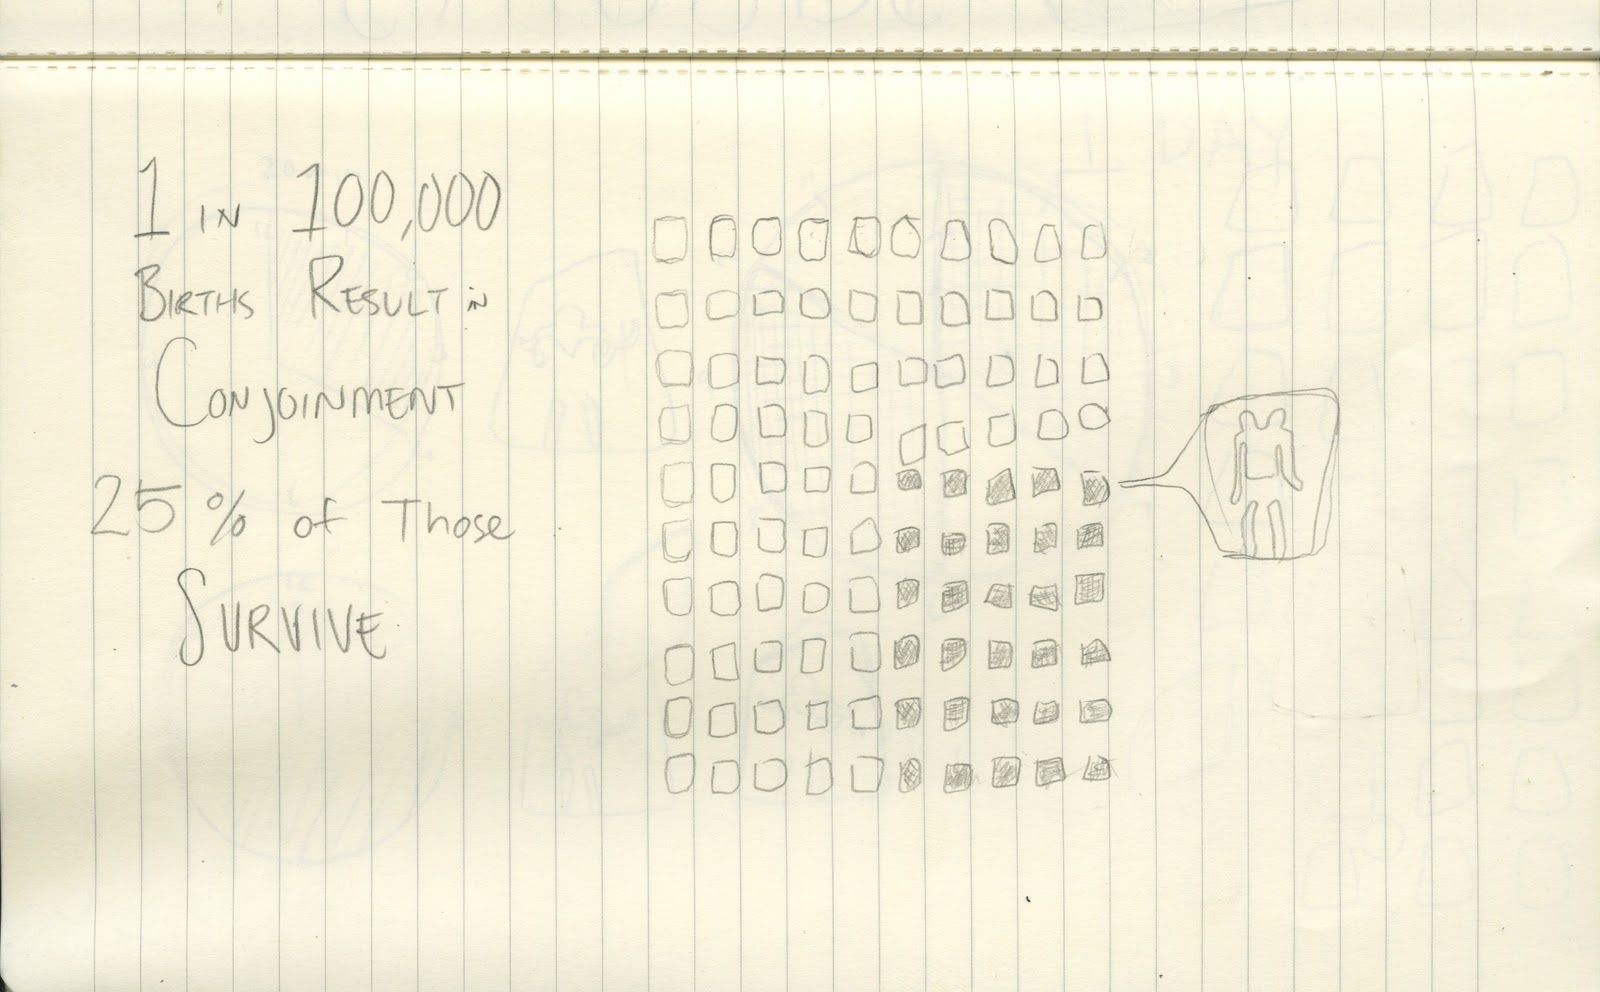 1 IN 100,000
BIRTHS RESULT in
CONJOINMENT
25% of Those
SURVIVE